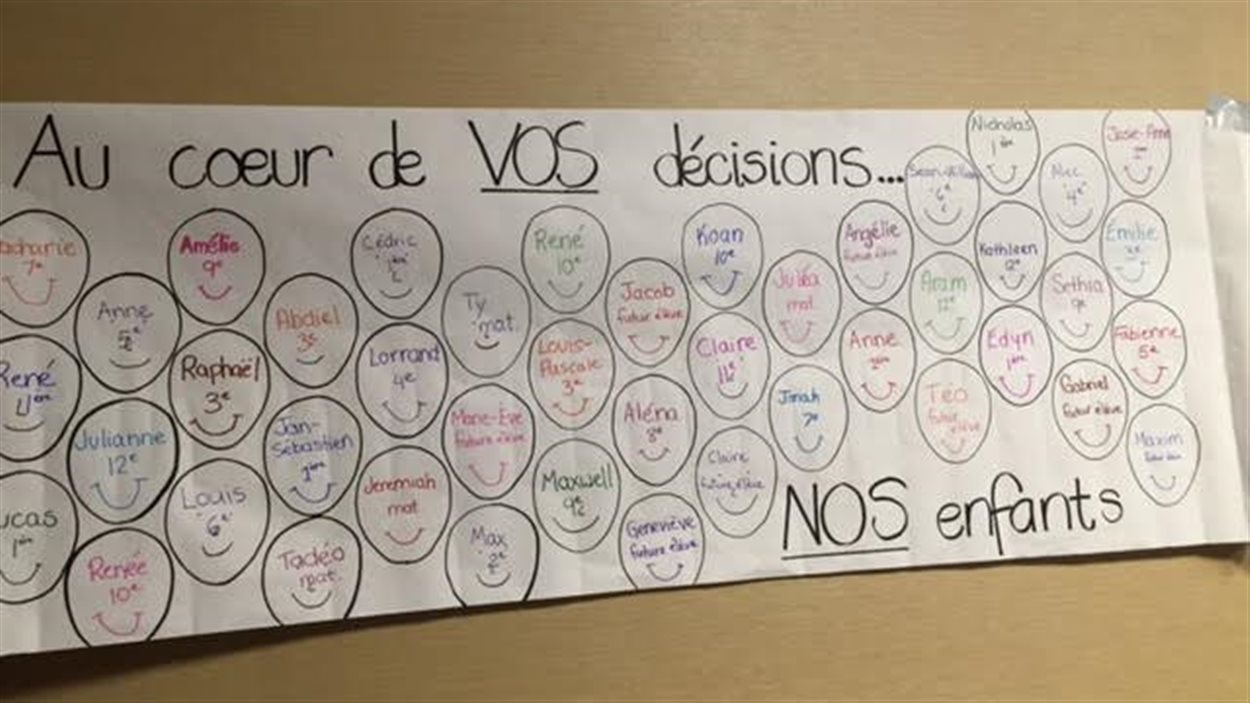 Au coeur de VOS décisions...
Nicholas
1ère
Josie-Anne
Alec
4e
Zacharie
7e
Amélie
9e
Cédric
1ère
René
10e
Koan
10e
Angélie
future élève
Kathleen
2e
Émilie
Anne
5e
Abdiel
3e
Ty
mat.
Jacob
futur élève
Juléa
mat.
Aram
12e
Sethia
9e
René
Raphaël
3e
Lorrand
4e
Louis-
Pascale
3e
Claire
11e
Anne
2ème
Edyn
1ère
Fabienne
5e
Julianne
12e
Jan-
Sébastien
1ère
Marie-Ève
future élève
Aléna
8e
Jinah
7e
Téo
futur
élève
Gabriel
futur élève
Maxim
Lucas
1ère
Louis
6e
Jeremiah
mat
Maxwell
9e
Claire
future élève
Renée
10e
Tadéo
mat.
Max
2e
Geneviève
future élève
NOS enfants